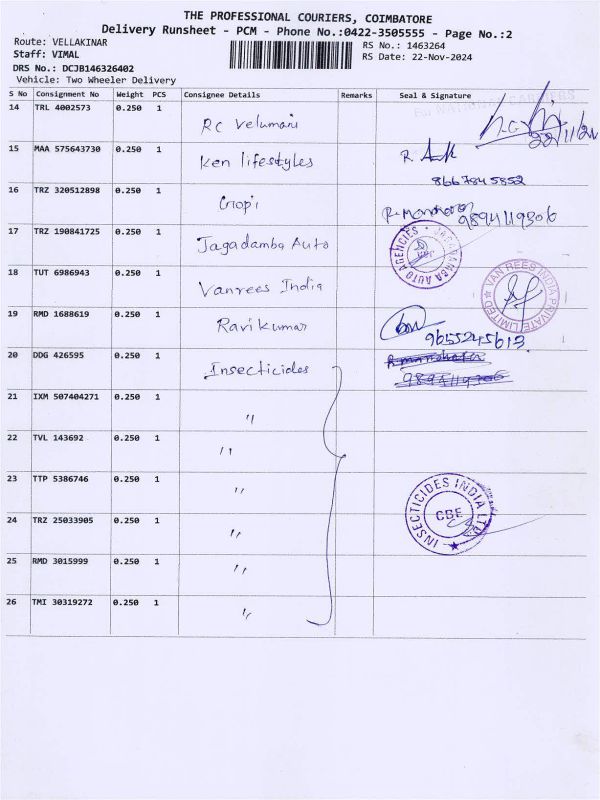 THE PROFESSIONAL COURIERS, COIMBATORE
Delivery Runsheet - PCM - Phone No.:0422-3505555 - Page No.:2
Route: VELLAKINAR
Staff: VIMAL
DRS No.: DCJB146326402
Vehicle: Two Wheeler Delivery
RS No.: 1463264
RS Date: 22-Nov-2024
S No Consignment No Weight PCS Consignee Details Remarks Seal & Signature
14 TRL 4002573 0.250 1 RC Velumani 22/11/24
15 MAA 575643730 0.250 1 Ken lifestyles 8667845852
16 TRZ 320512898 0.250 1 Gopi R. Manoharan 9894119306
17 TRZ 190841725 0.250 1 Jagadamba Auto JAGADAMBA AUTO AGENCIES
18 TUT 6986943 0.250 1 Vanrees India VAN REES INDIA PRIVATE LIMITED
19 RMD 1688619 0.250 1 Ravikumar 9655245613
20 DDG 426595 0.250 1 Insecticides R manoharan 9894119306
21 IXM 507404271 0.250 1 "
22 TVL 143692 0.250 1 "
23 TTP 5386746 0.250 1 " INSECTICIDES INDIA LTD. CBE
24 TRZ 25033905 0.250 1 "
25 RMD 3015999 0.250 1 "
26 TMI 30319272 0.250 1 "